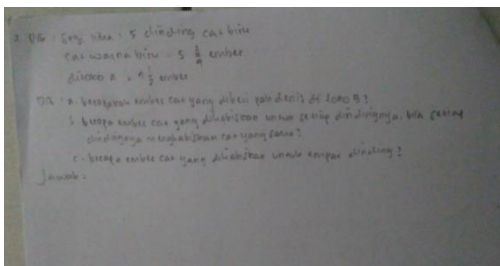 2. DG : 5 dinding cat biru
cat warna biru = 5 ember
ditoko A = ember
DQ : a. berapakah ember cat yang dibeli pak denis di toko B?
b. berapa ember cat yang dihabiskan untuk setiap dindingnya, bila setiap
dindingnya menghabiskan cat yang sama?
c. berapa ember cat yang dihabiskan untuk empat dinding?
Jawab :